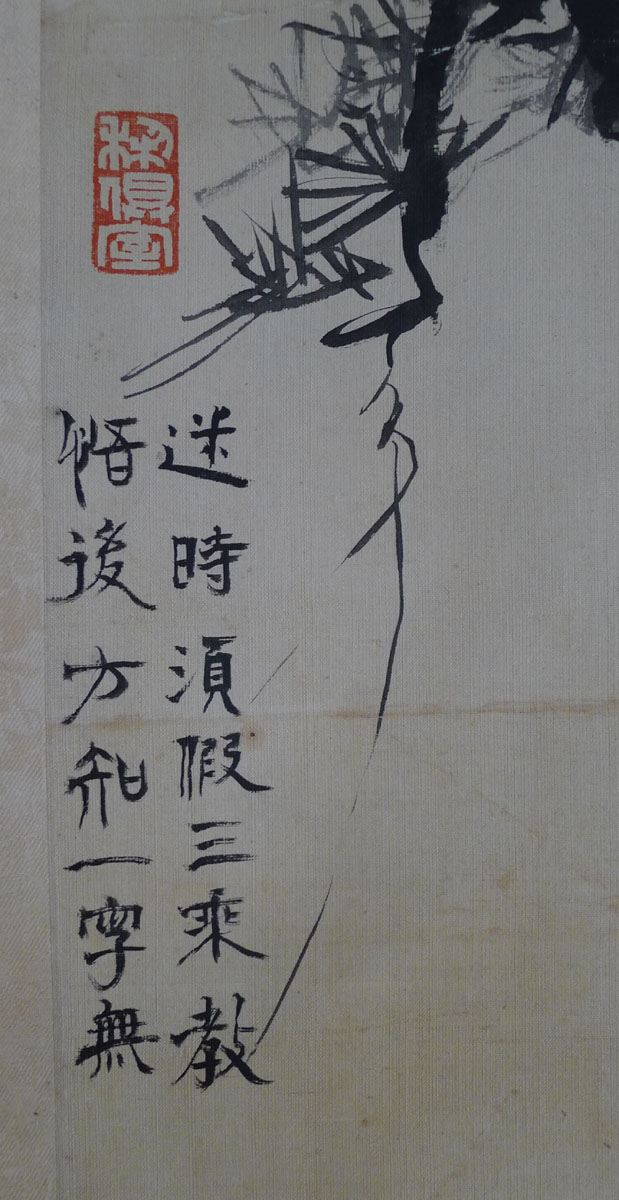 迷時湏假三乘教
悟後方知一字無